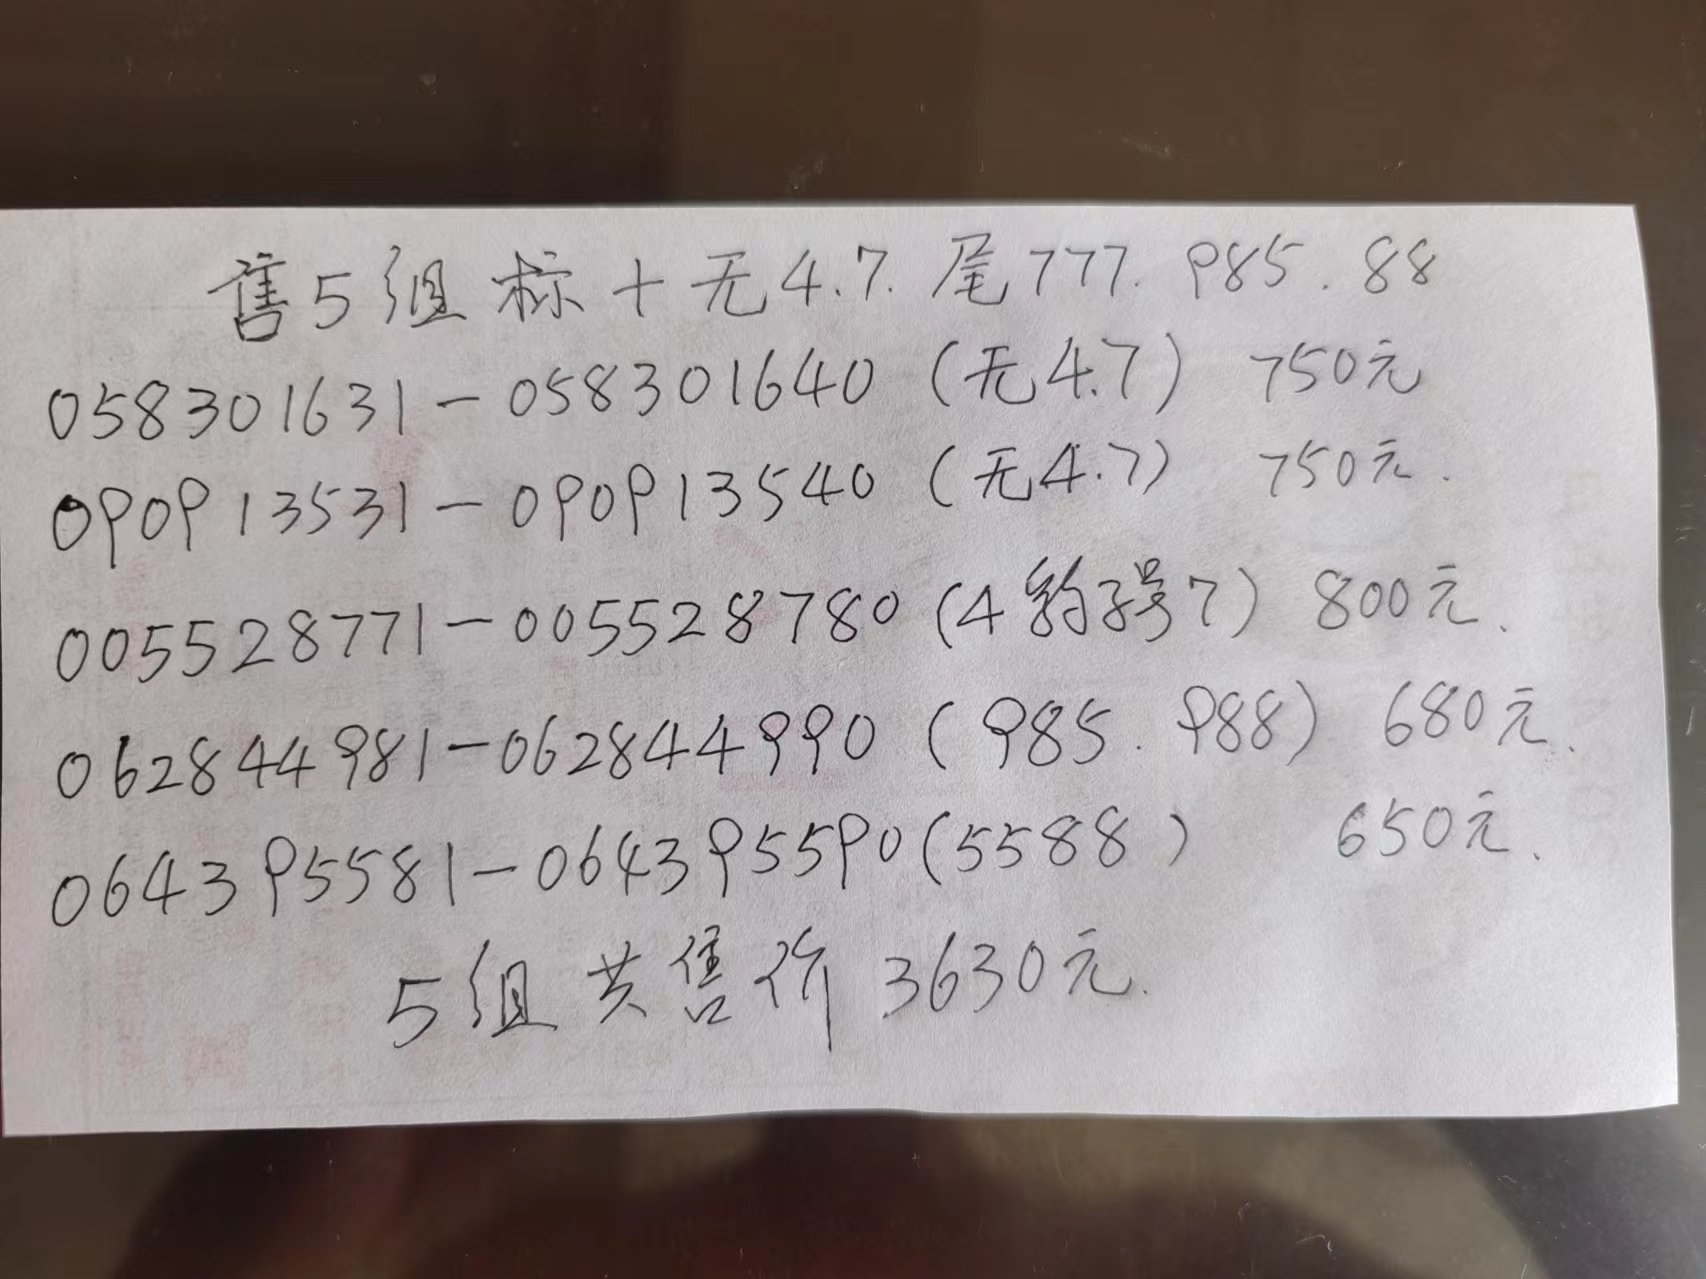 售5组标十无4.7.尾777.985.88
058301631-058301640(无4.7) 750元
090913531-090913540(无4.7) 750元.
005528771-005528780(4豹子号7) 800元.
062844981-062844990(985.988) 680元.
064395581-064395590(5588) 650元.
5组共售价3630元.